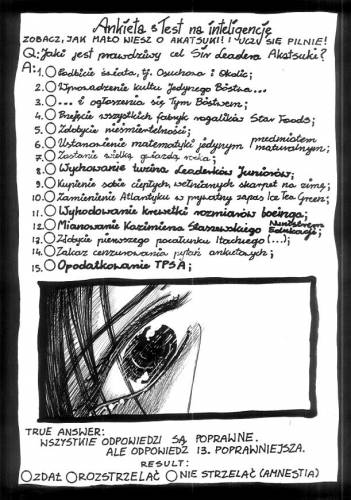 Ankieta & Test na inteligencję
ZOBACZ, JAK MAŁO WIESZ O AKATSUKI! I UCZ SIĘ PILNIE!
Q: Jaki jest prawdziwy cel Sir Leadera Akatsuki?
A: 1. Podbicie świata, tj. Osuchowa i Okolic;
2. Wprowadzenie kultu Jedynego Bóstwa...
3. ...i ogłoszenia się Tym Bóstwem;
4. Przejęcie wszystkich fabryk nagalików Star Foods;
5. Zdobycie nieśmiertelności;
6. Ustanowienie matematyki jedynym przedmiotem maturalnym;
7. Zostanie wielką gwiazdą rocka;
8. Wychowanie tuzina Leaderków Juniorów;
9. Kupienie sobie ciepłych, wełnianych skarpet na zimę;
10. Zamienienie Atlantyku w prywatny zapas Ice Tea Green;
11. Wyhodowanie krewetki rozmiarów boeinga;
12. Mianowanie Kazimierza Staszewskiego Ministrem Edukacji;
13. Zdobycie pierwszego pocałunku Itachiego (...);
14. Zakaz cenzurowania pytań ankietowych;
15. Opodatkowanie TPSA;
TRUE ANSWER:
WSZYSTKIE ODPOWIEDZI SĄ POPRAWNE.
ALE ODPOWIEDŹ 13. POPRAWNIEJSZA.
RESULT:
ZDAŁ ROZSTRZELAĆ NIE STRZELAĆ (AMNESTIA)